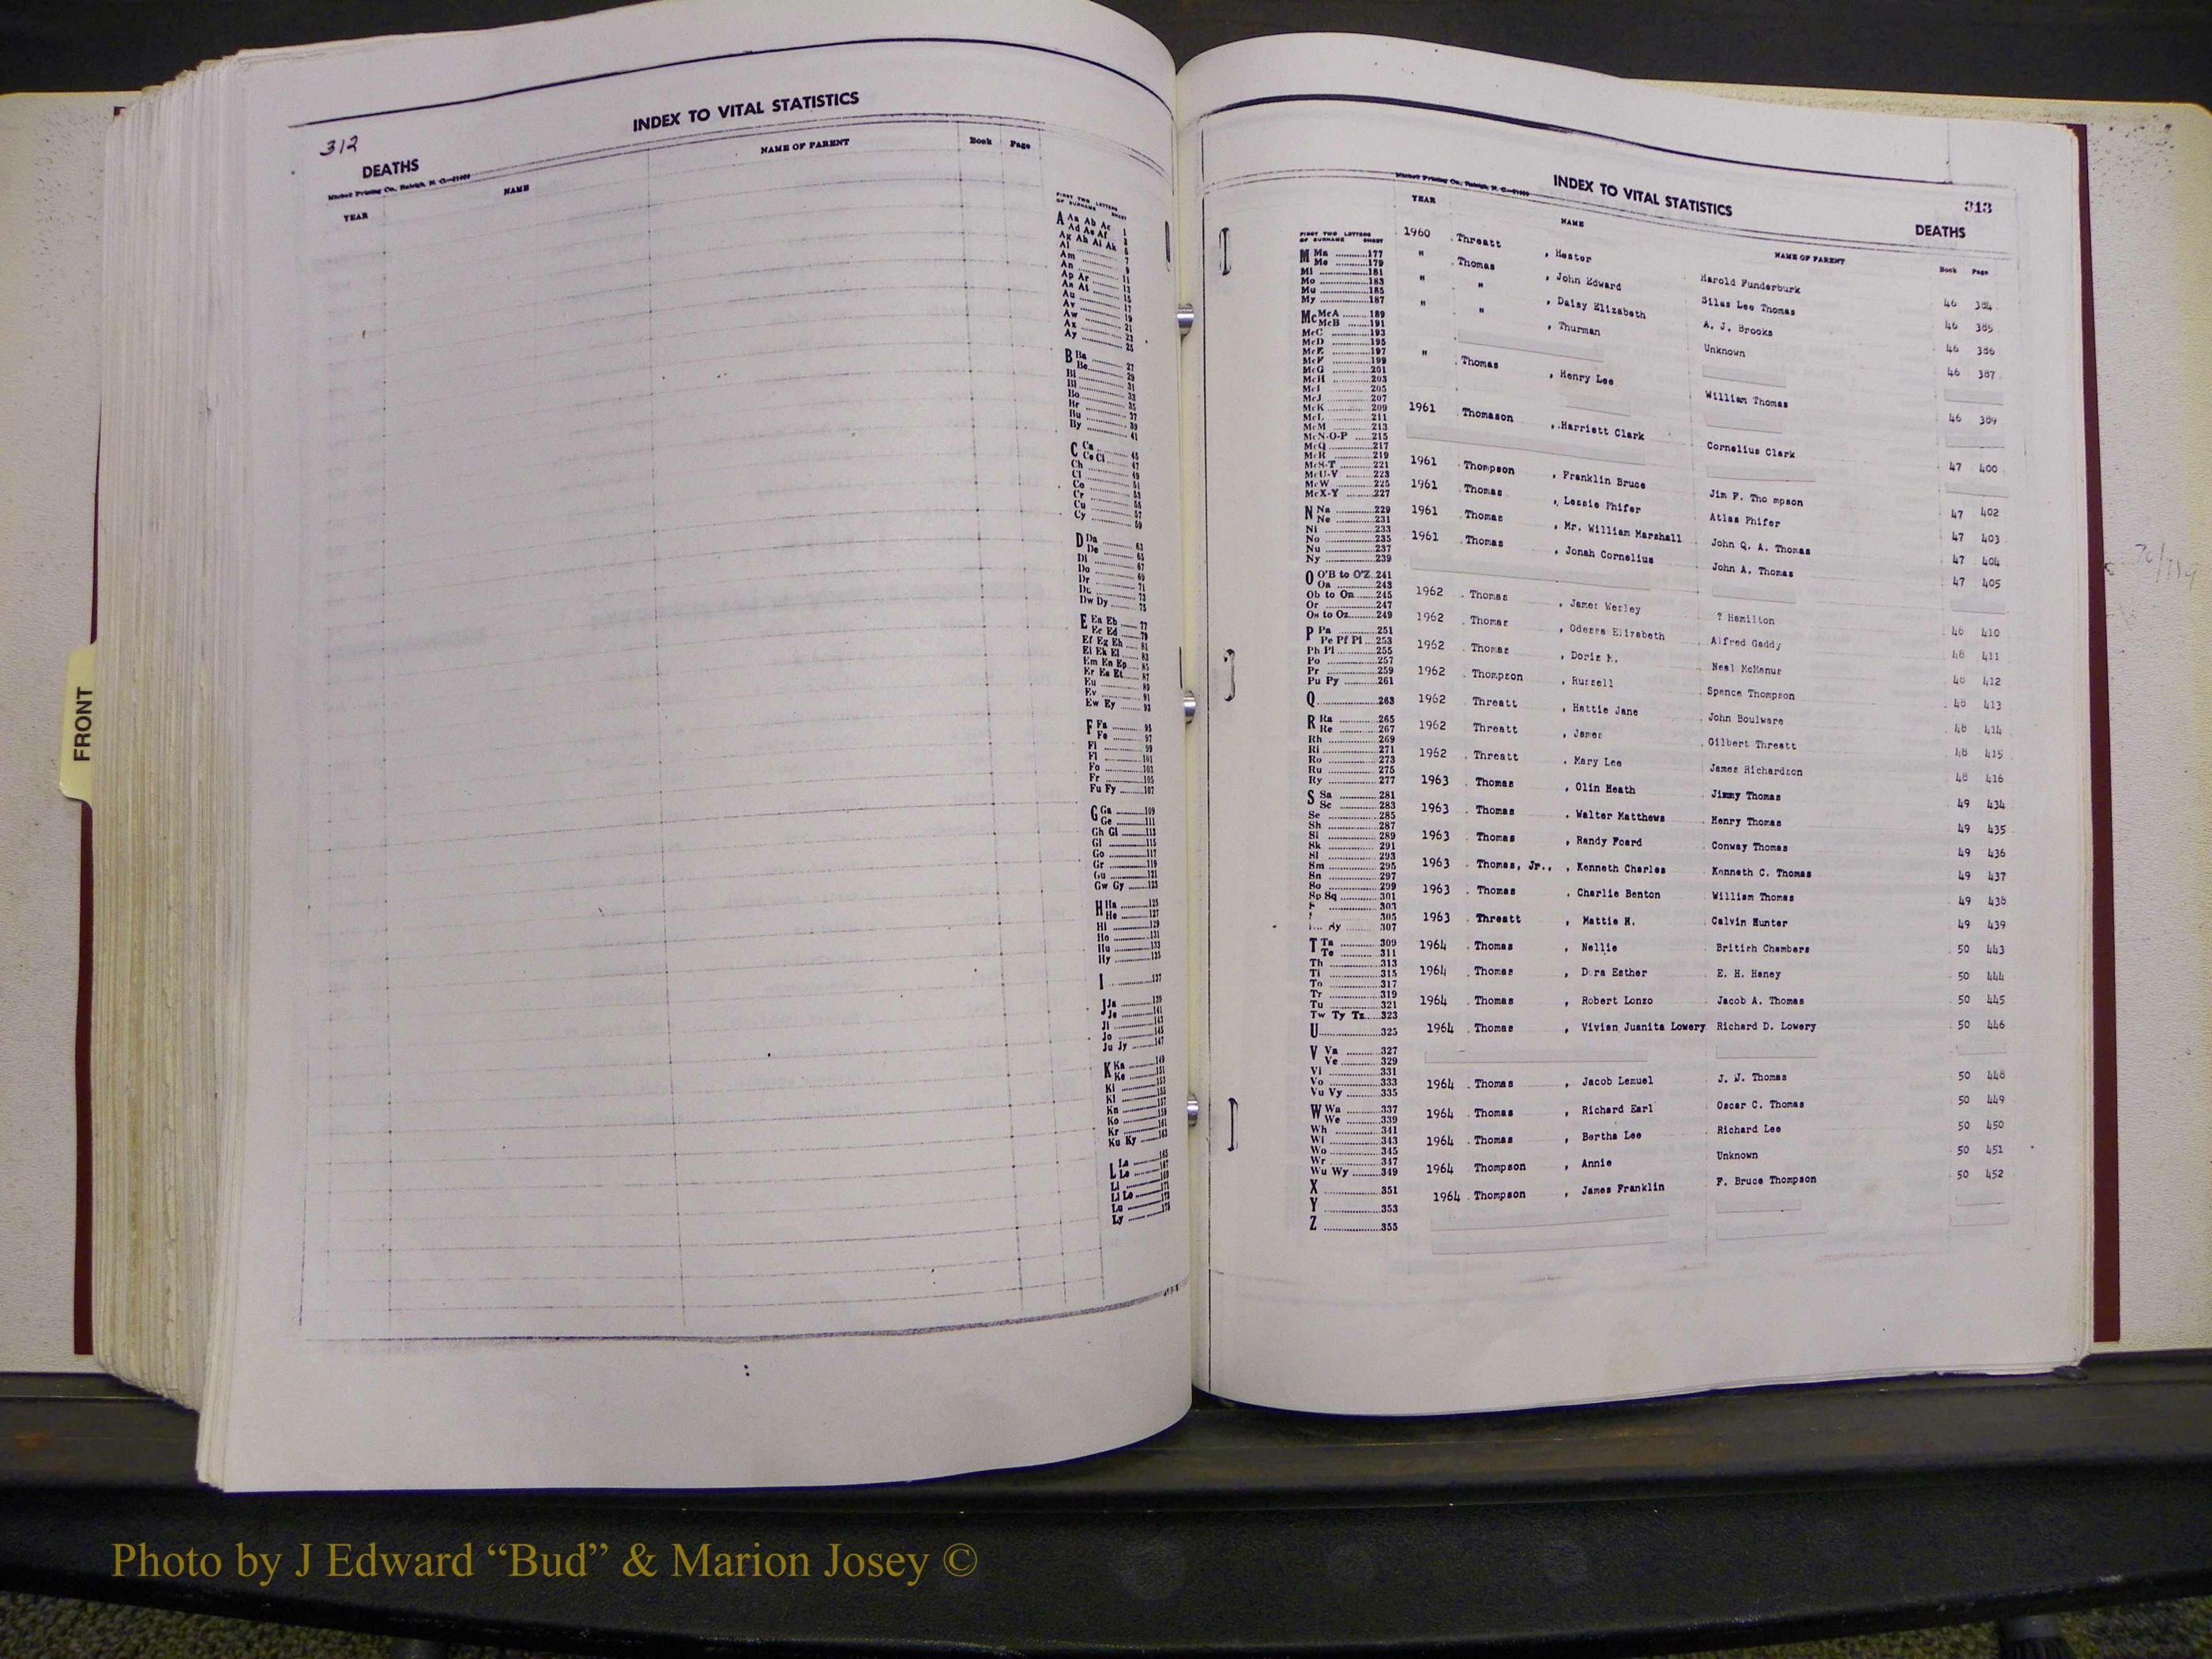 312
INDEX TO VITAL STATISTICS
DEATHS
Mitchell Printing Co., Raleigh, N. C.
YEAR NAME NAME OF PARENT Book Page
FIRST TWO LETTERS
OF SURNAME SHEET
A Aa Ab Ac 1
Ad Ae Af 3
Ag Ah Ai Ak 5
Al 7
Am 9
An 11
Ap Ar 13
As At 15
Au 17
Av 19
Aw 21
Ax 23
Ay 25
B Ba 27
Be 29
Bi 31
Bl 33
Bo 35
Br 37
Bu 39
By 41
C Ca 45
Ce Ci 47
Ch 49
Cl 51
Co 53
Cr 55
Cu 57
Cy 59
D Da 63
De 65
Di 67
Do 69
Dr 71
Du 73
Dw Dy 75
E Ea Eb 77
Ec Ed 79
Ef Eg Eh 81
Ei Ek El 83
Em En Ep 85
Er Es Et 87
Eu 89
Ev 91
Ew Ey 93
F Fa 95
Fe 97
Fi 99
Fl 101
Fo 103
Fr 105
Fu Fy 107
G Ga 109
Ge 111
Gh Gi 113
Gl 115
Go 117
Gr 119
Gu 121
Gw Gy 123
H Ha 125
He 127
Hi 129
Ho 131
Hu 133
Hy 135
I 137
J Ja 139
Je 141
Ji 143
Jo 145
Ju Jy 147
K Ka 149
Ke 151
Ki 153
Kl 155
Kn 157
Ko 159
Kr 161
Ku Ky 163
L La 165
Le 167
Li 169
Ll Lo 171
Lu 173
Ly 175
INDEX TO VITAL STATISTICS
313
DEATHS
Mitchell Printing Co., Raleigh, N. C.
YEAR NAME NAME OF PARENT Book Page
FIRST TWO LETTERS
OF SURNAME SHEET
M Ma 177
Me 179
Mi 181
Mo 183
Mu 185
My 187
Mc McA 189
McB 191
McC 193
McD 195
McE 197
McF 199
McG 201
McH 203
McI 205
McJ 207
McK 209
McL 211
McM 213
McN-O-P 215
McQ 217
McR 219
McS-T 221
McU-V 223
McW 225
McX-Y 227
N Na 229
Ne 231
Ni 233
No 235
Nu 237
Ny 239
O O'B to O'Z 241
Oa 243
Ob to On 245
Or 247
Os to Oz 249
P Pa 251
Pe Pf Pi 253
Ph Pl 255
Po 257
Pr 259
Pu Py 261
Q 263
R Ra 265
Re 267
Rh 269
Ri 271
Ro 273
Ru 275
Ry 277
S Sa 281
Sc 283
Se 285
Sh 287
Si 289
Sk 291
Sl 293
Sm 295
Sn 297
So 299
Sp Sq 301
303
305
307
T Ta 309
Te 311
Th 313
Ti 315
To 317
Tr 319
Tu 321
Tw Ty Tz 323
U 325
V Va 327
Ve 329
Vi 331
Vo 333
Vu Vy 335
W Wa 337
We 339
Wh 341
Wi 343
Wo 345
Wr 347
Wu Wy 349
X 351
Y 353
Z 355
1960 Threatt , Hester Harold Funderburk 46 384
" Thomas , John Edward Silas Lee Thomas 46 385
" " , Daisy Elizabeth A. J. Brooks 46 386
" " , Thurman Unknown 46 387
" Thomas , Henry Lee William Thomas 46 389
1961 Thomason , Harriett Clark Cornelius Clark 47 400
1961 Thompson , Franklin Bruce Jim F. Tho mpson 47 402
1961 Thomas , Lessie Phifer Atlas Phifer 47 403
1961 Thomas , Mr. William Marshall John Q. A. Thomas 47 404
1961 Thomas , Jonah Cornelius John A. Thomas 47 405
1962 Thomas , James Wesley ? Hamilton 48 410
1962 Thomas , Odessa Elizabeth Alfred Gaddy 48 411
1962 Thomas , Doris M. Neal McManus 48 412
1962 Thompson , Russell Spence Thompson 48 413
1962 Threatt , Hattie Jane John Boulware 48 414
1962 Threatt , James Gilbert Threatt 48 415
1962 Threatt , Mary Lee James Richardson 48 416
1963 Thomas , Olin Heath Jimmy Thomas 49 434
1963 Thomas , Walter Matthews Henry Thomas 49 435
1963 Thomas , Randy Foard Conway Thomas 49 436
1963 Thomas, Jr., , Kenneth Charles Kenneth C. Thomas 49 437
1963 Thomas , Charlie Benton William Thomas 49 438
1963 Threatt , Mattie H. Calvin Hunter 49 439
1964 Thomas , Nellie British Chambers 50 443
1964 Thomas , Dora Esther E. H. Haney 50 444
1964 Thomas , Robert Lonzo Jacob A. Thomas 50 445
1964 Thomas , Vivian Juanita Lowery Richard D. Lowery 50 446
1964 Thomas , Jacob Lemuel J. W. Thomas 50 448
1964 Thomas , Richard Earl Oscar C. Thomas 50 449
1964 Thomas , Bertha Lee Richard Lee 50 450
1964 Thompson , Annie Unknown 50 451
1964 Thompson , James Franklin F. Bruce Thompson 50 452
FRONT
Photo by J Edward “Bud” & Marion Josey ©